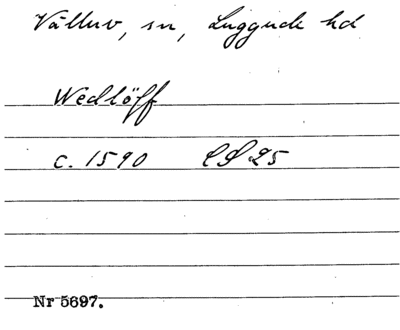 Välluv, sn, Luggude hd
Wedlöff
c. 1590 CS 25
Nr 5697.